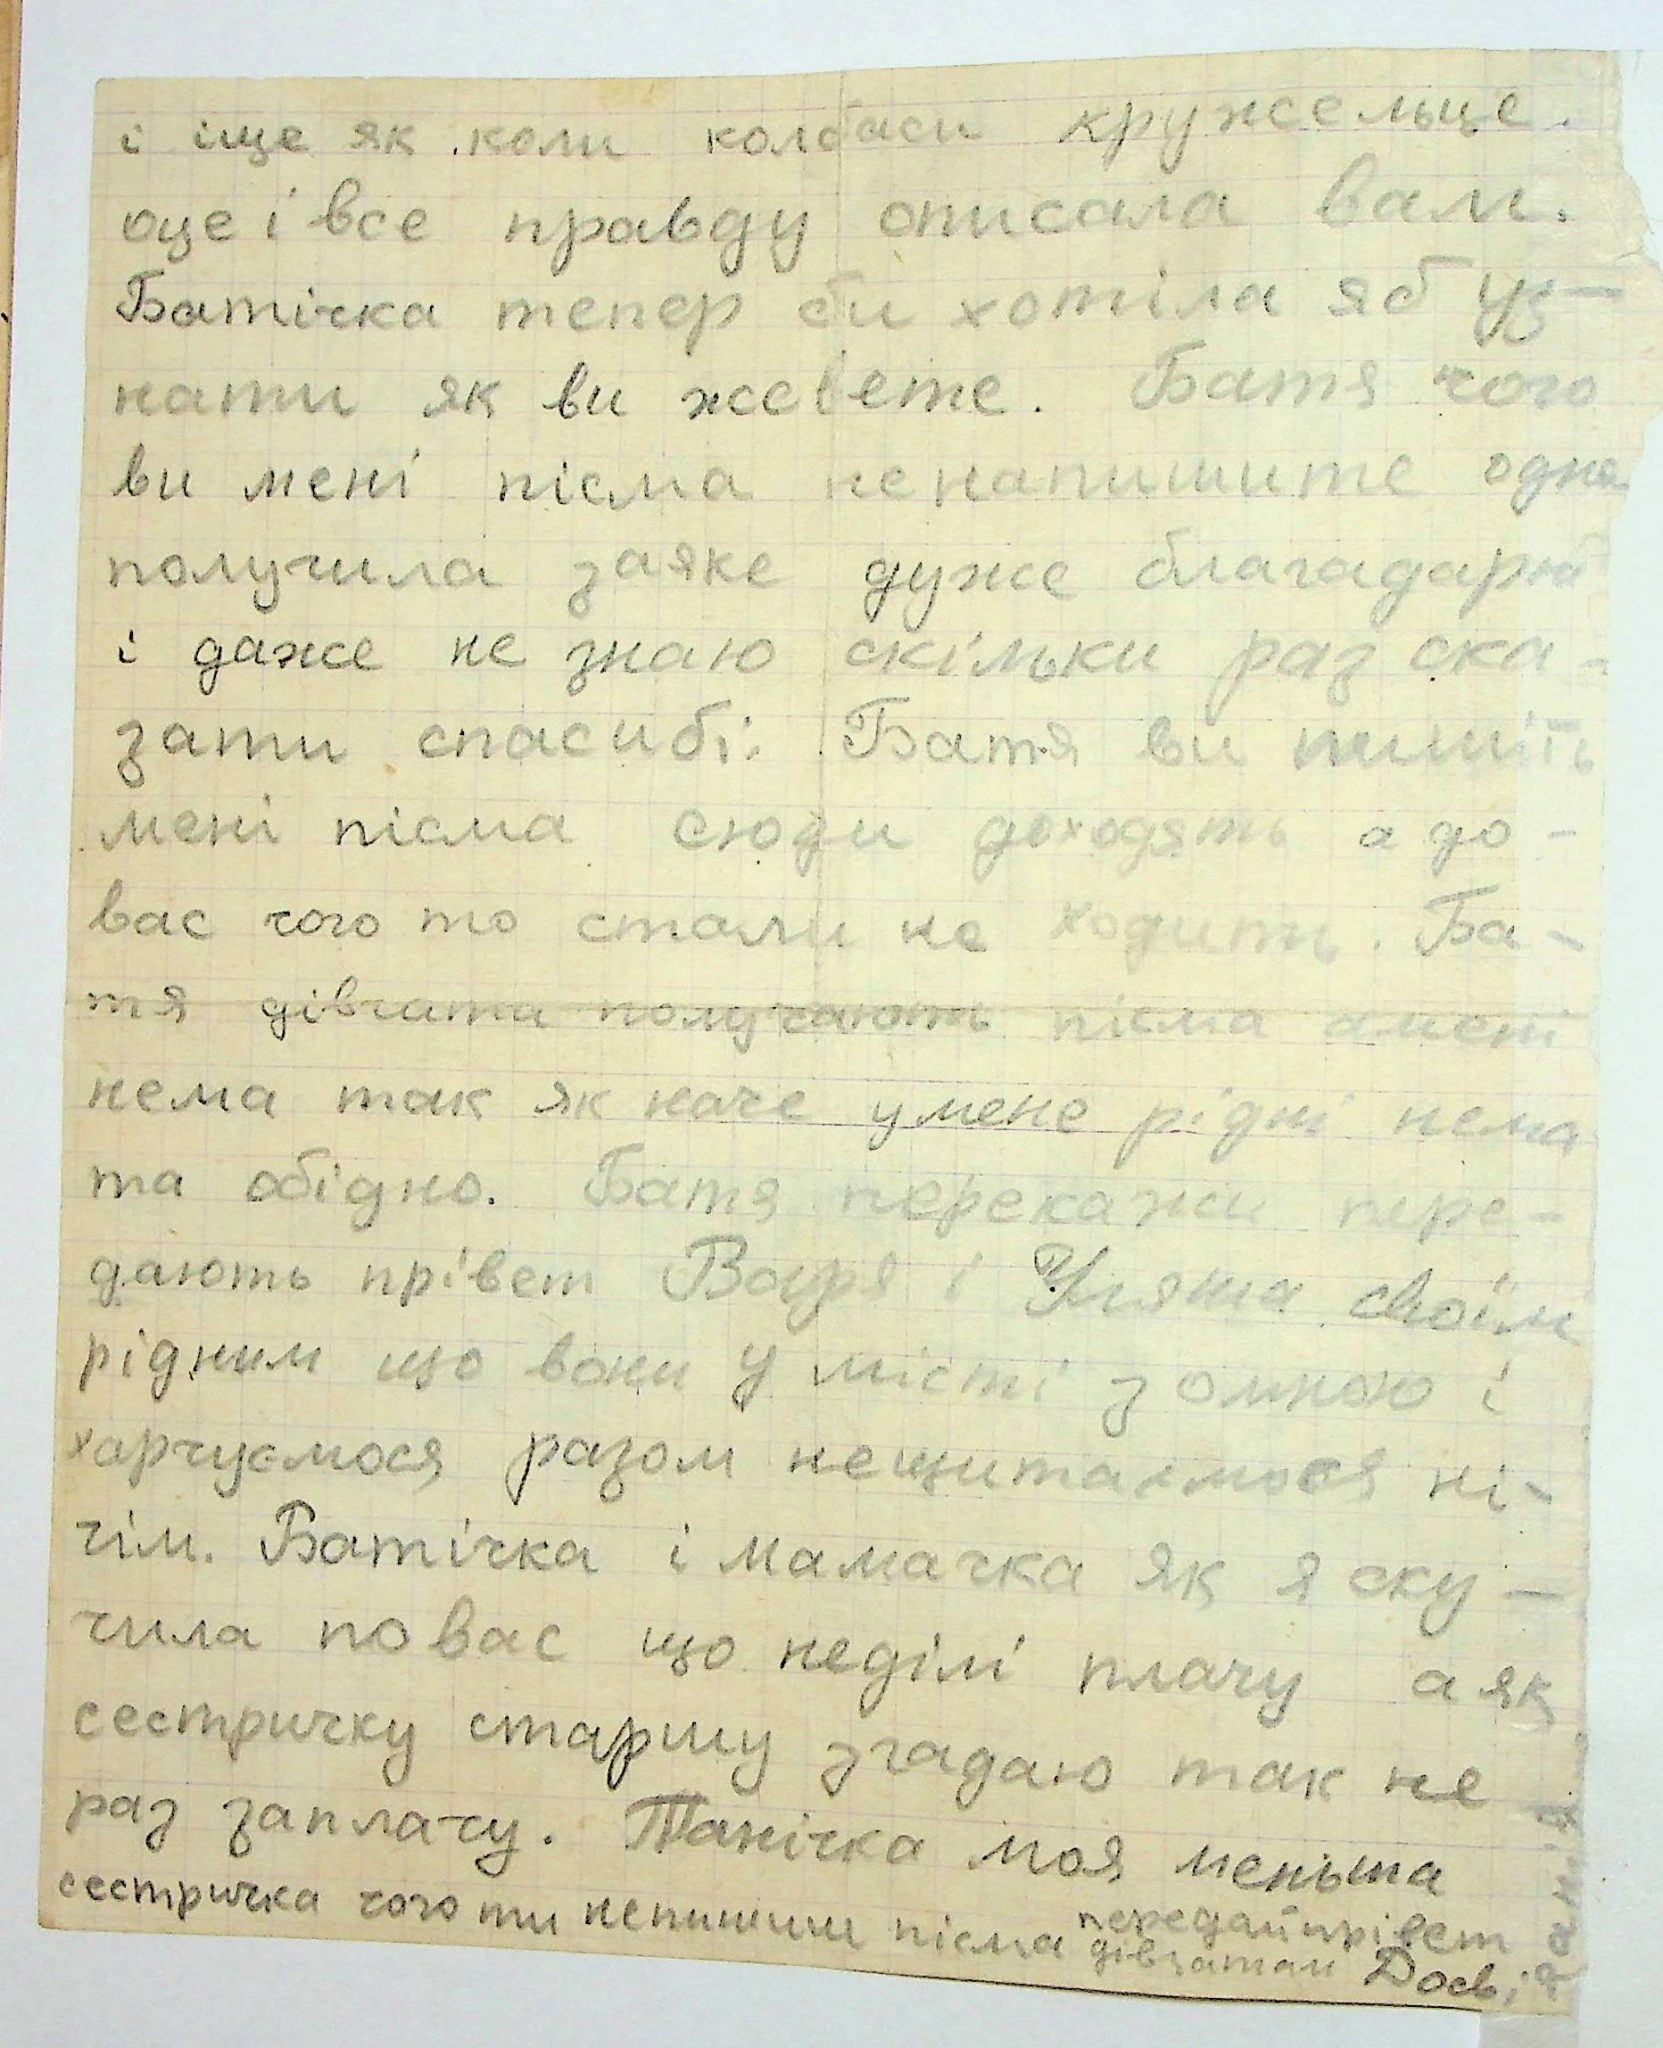 і іще як коли колбаси кружсельце.
оце і все правду описала вам.
Батічка тепер би хотіла яб уз-
нати як ви жевете. Батя чого
ви мені písма ненапишите одно
получила заяке дуже благадарю
і даже не знаю скільки раз ска-
зати спасибі. Батя ви пишіть
мені пісма сюди доходять а до-
вас чого то стали не ходить. Ба-
тя дівчата получають пісма амені
нема так як наче умене рідні нема
та обідно. Батя перекажи пере-
дають прівет Варя і Уляша своїм
рідним що вони у місті зомною і
харчуємося разом нещитаємося ні-
чім. Батічка і мамачка як я ску-
чила по вас що неділі плачу а як
сестричку старшу згадаю так не
раз заплачу. Танічка моя меньша
сестричка чого ти непишиш пісма передай прівет
дівчатам Досві
данія